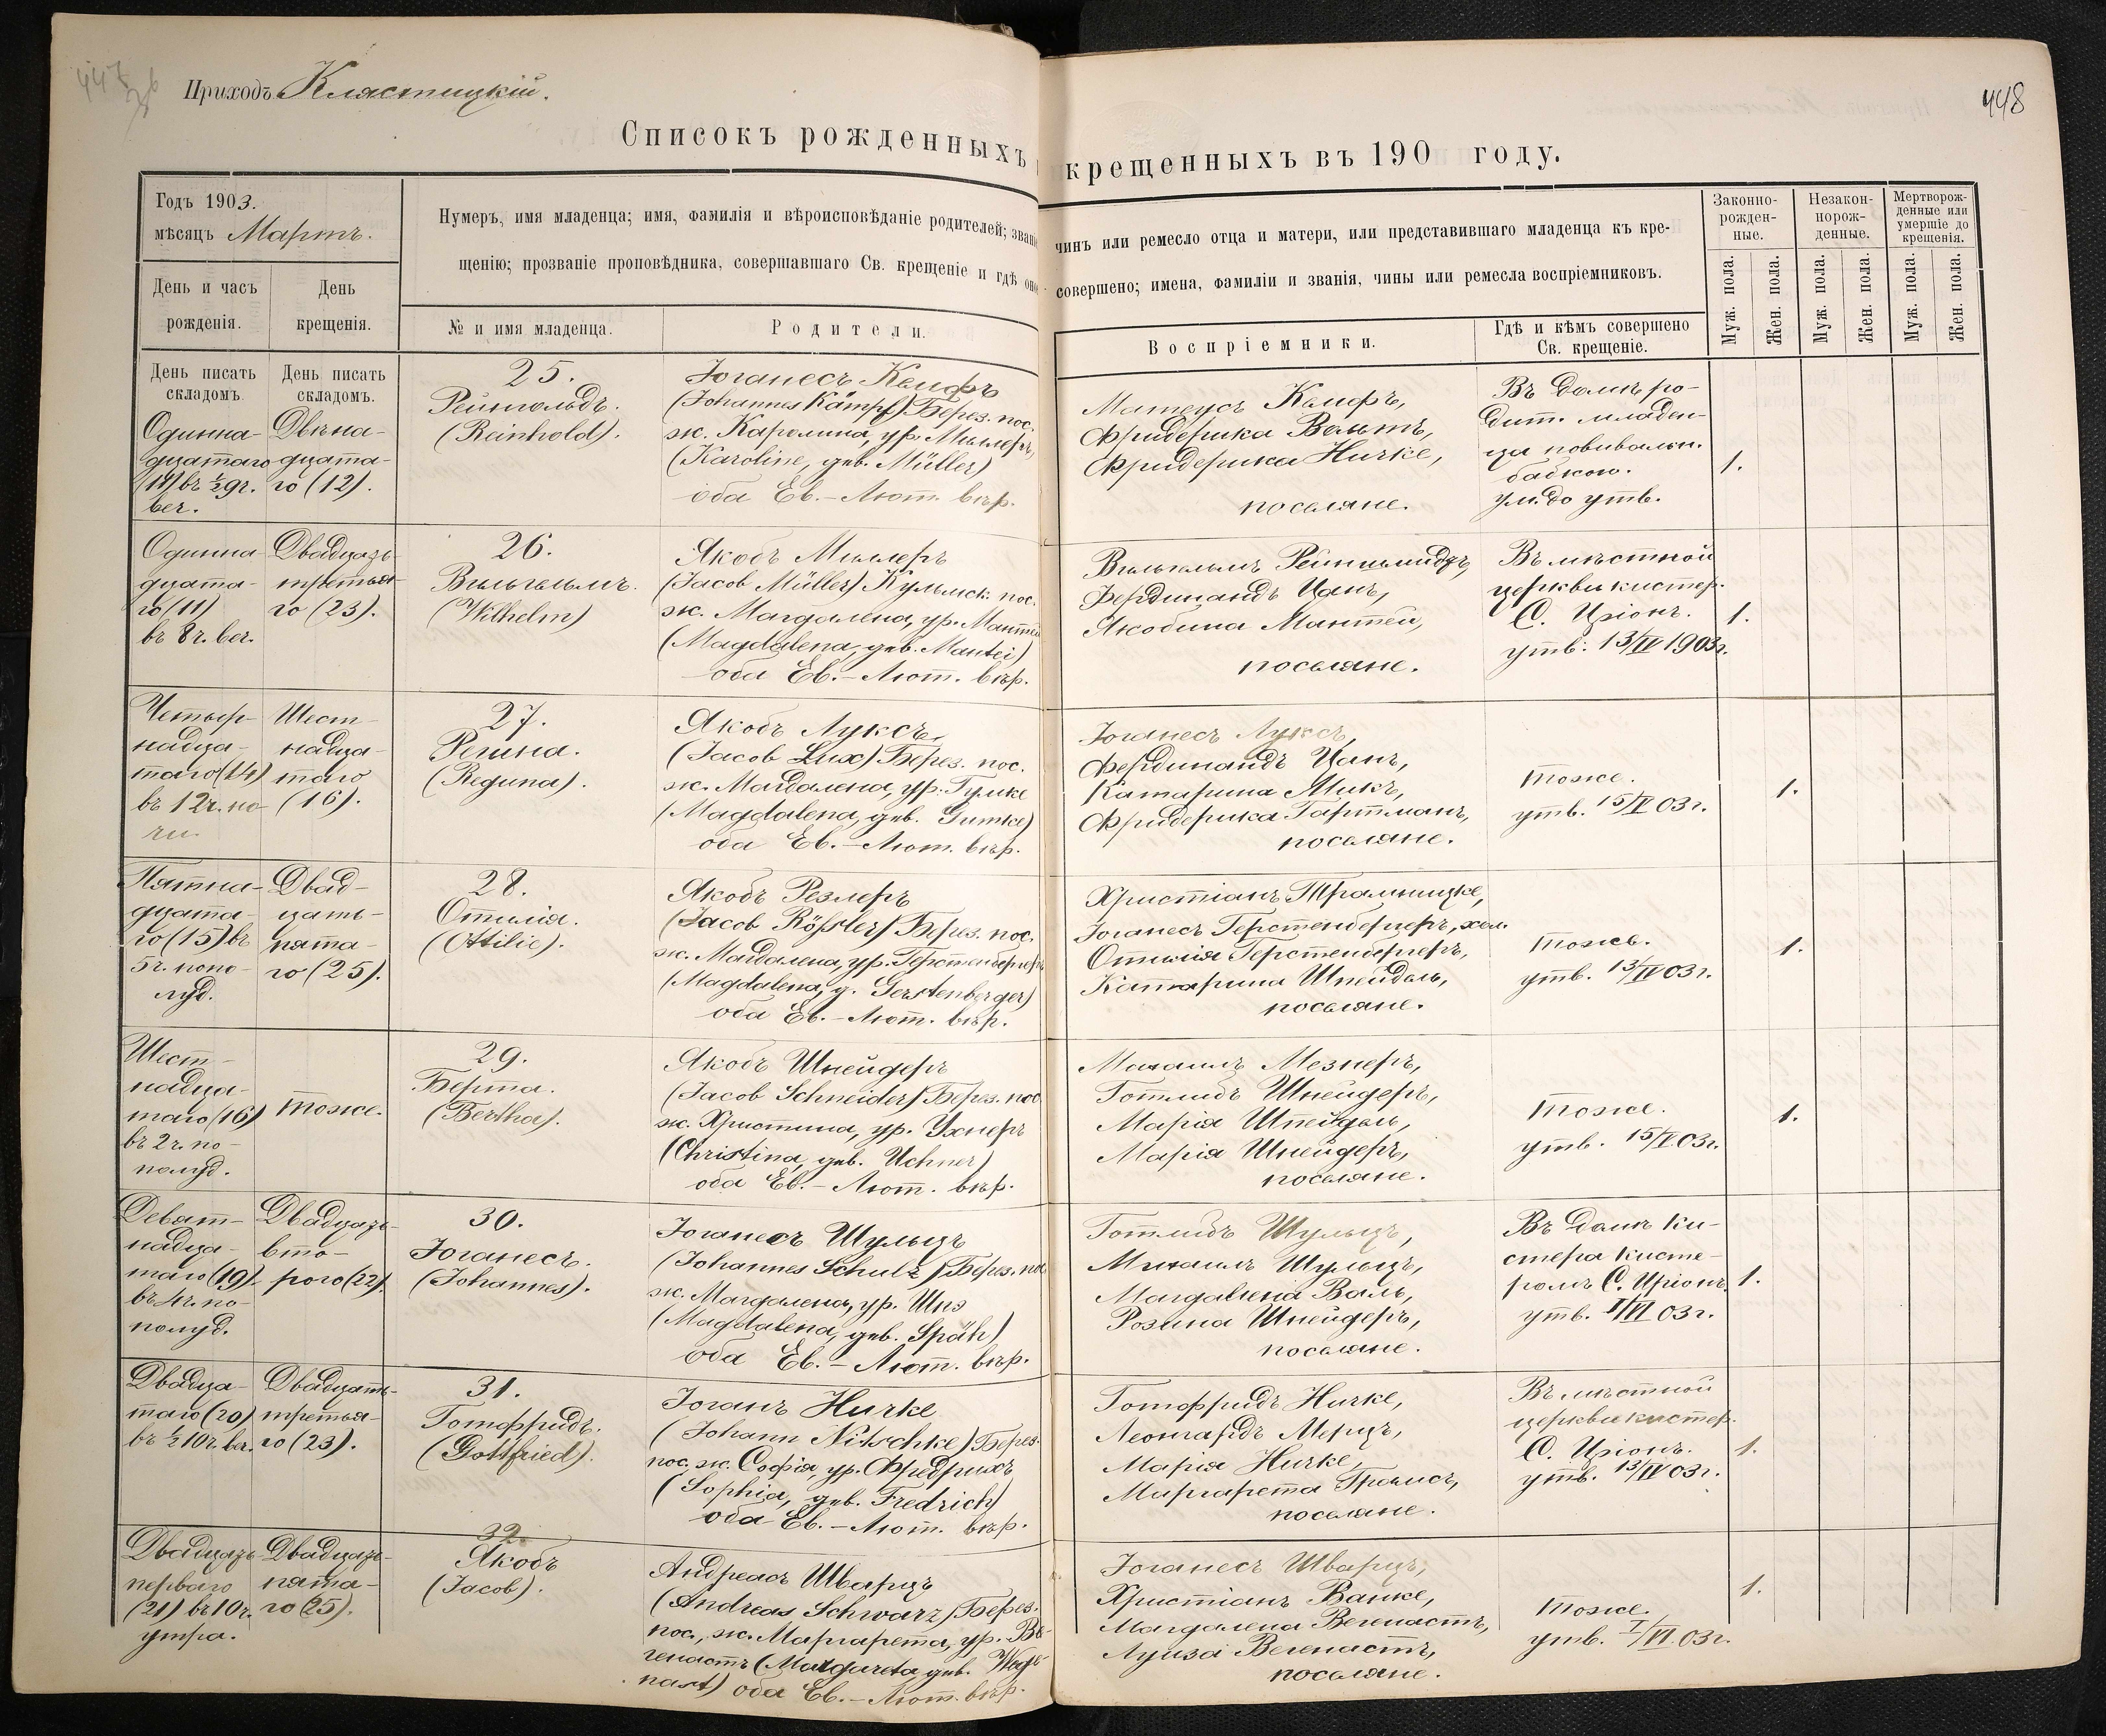 Приходъ Клястицкій.
448
Списокъ рожденныхъ
крещенныхъ въ 190 году.
Годъ 1903.
мѣсяцъ Мартъ.
День и часъ рожденія.
День крещенія.
Нумеръ, имя младенца; имя, фамилія и вѣроисповѣданіе родителей; званіе
щенію; прозваніе проповѣдника, совершавшаго Св. крещеніе и гдѣ оно
№ и имя младенца.
Родители.
чинъ или ремесло отца и матери, или представившаго младенца къ кре-
совершено; имена, фамиліи и званія, чины или ремесла воспріемниковъ.
Воспріемники.
Гдѣ и кѣмъ совершено
Св. крещеніе.
Законно-
рожден-
ные.
Незакон-
норож-
денные.
Мертворож-
денные или
умершіе до
крещенія.
Муж. пола.
Жен. пола.
Муж. пола.
Жен. пола.
Муж. пола.
Жен. пола.
День писать
складомъ.
День писать
складомъ.
Одинна-
дцатаго
(11) въ ½9ч.
веч.
Двѣна-
дцата-
го (12).
25.
Рейнгольдъ.
(Reinhold).
Іоганесъ Кемфъ
(Johannes Kämpf) Берез. пос.
ж. Каролина, ур. Миллеръ,
(Karoline, geb. Müller)
оба Ев.-Лют. вѣр.
Матеусъ Кемфъ,
Фридерика Вольтъ,
Фридерика Ничке,
поселяне.
Въ домѣ ро-
дит. младен-
ца повивальн.
бабкою.
ум. до утв.
1.
Одинна-
дцата-
го (11)
въ 8ч. веч.
Двадцать
третья-
го (23).
26.
Вильгельмъ.
(Wilhelm)
Якобъ Миллеръ
(Jacob Müller) Кульмск. пос.
ж. Магдалена, ур. Мантей
(Magdalena, geb. Mantei)
оба Ев.-Лют. вѣр.
Фердинандъ Цанъ,
Якобина Мантей,
поселяне.
Въ мѣстной
церкви кистер.
С. Иріонъ.
утв. 13/IV 1903г.
1.
Четыр-
надца-
таго (14)
въ 12ч. но-
чи.
Шест-
надца-
таго
(16).
27.
Регина.
(Regina).
Якобъ Луксъ,
(Jacob Lux) Берез. пос.
ж. Магдалена, ур. Гумке
(Magdalena, geb. Gumke)
оба Ев.-Лют. вѣр.
Іоганесъ Луксъ,
Фердинандъ Цанъ,
Катарина Микъ,
Фридерика Гартманъ,
поселяне.
тоже.
утв. 15/V 03г.
1.
Пятна-
дцата-
го (15) въ
5ч. попо-
луд.
Двад-
цать-
пята-
го (25).
28.
Отилія.
(Ottilie).
Якобъ Резлеръ
(Jacob Rößler) Берез. пос.
ж. Магдалена, ур. Герстенбергеръ
(Magdalena, g. Gerstenberger)
оба Ев.-Лют. вѣр.
Іоганесъ Герстенбергеръ, хол.
Отилія Герстенбергеръ,
Катарина Шпейдель,
поселяне.
тоже.
утв. 13/IV 03г.
1.
Шест-
надца-
таго (16)
въ 2ч. по-
полуд.
тоже.
29.
Берта.
(Bertha).
Якобъ Шнейдеръ
(Jacob Schneider) Берез. пос
ж. Христина, ур. Ухнеръ
(Christina, geb. Uchner)
оба Ев.-Лют. вѣр.
Михаилъ Мезнеръ,
Готлибъ Шнейдеръ,
Марія Шпейдель,
Марія Шнейдеръ,
поселяне.
тоже.
утв. 15/V 03г.
1.
Девят-
надца-
таго (19)
въ 4ч. по-
полуд.
Двадцать
вто-
рого (22).
30.
Іоганесъ.
(Johannes).
Іоганесъ Шульцъ
(Johannes Schulz) Берез. пос
ж. Магдалена, ур. Шпэ
(Magdalena, geb. Späh)
оба Ев.-Лют. вѣр.
Готлибъ Шульцъ,
Михаилъ Шульцъ,
Магдалена Валь,
Розина Шнейдеръ,
поселяне.
Въ домѣ ки-
стера кисте-
ромъ С. Иріонъ.
утв. I/VI 03г.
1.
Двадца-
таго (20)
въ ½10ч. веч.
Двадцать-
третья-
го (23).
31.
Готфридъ.
(Gottfried).
Іоганъ Ничке
(Johann Nitschke) Берез.
пос. ж. Софія, ур. Фредрихъ
(Sophia, geb. Fredrich)
оба Ев.-Лют. вѣр.
Готфридъ Ничке,
Леонгардъ Мерцъ,
Марія Ничке,
Маргарета Грамсъ,
поселяне.
Въ мѣстной
церкви кистер.
С. Иріонъ.
утв. 13/IV 03г.
1.
Двадцать
перваго
(21) въ 10ч.
утра.
Двадцать-
пята-
го (25).
32.
Якобъ
(Jacob).
Андреасъ Шварцъ
(Andreas Schwarz) Берез.
пос., ж. Маргарета, ур. Ве-
генастъ (Margareta, geb. Wege-
nast) оба Ев.-Лют. вѣр.
Іоганесъ Шварцъ,
Христіанъ Ванке,
Магдалена Вегенастъ,
Луиза Вегенастъ,
поселяне.
тоже.
утв. I/VI. 03г.
1.